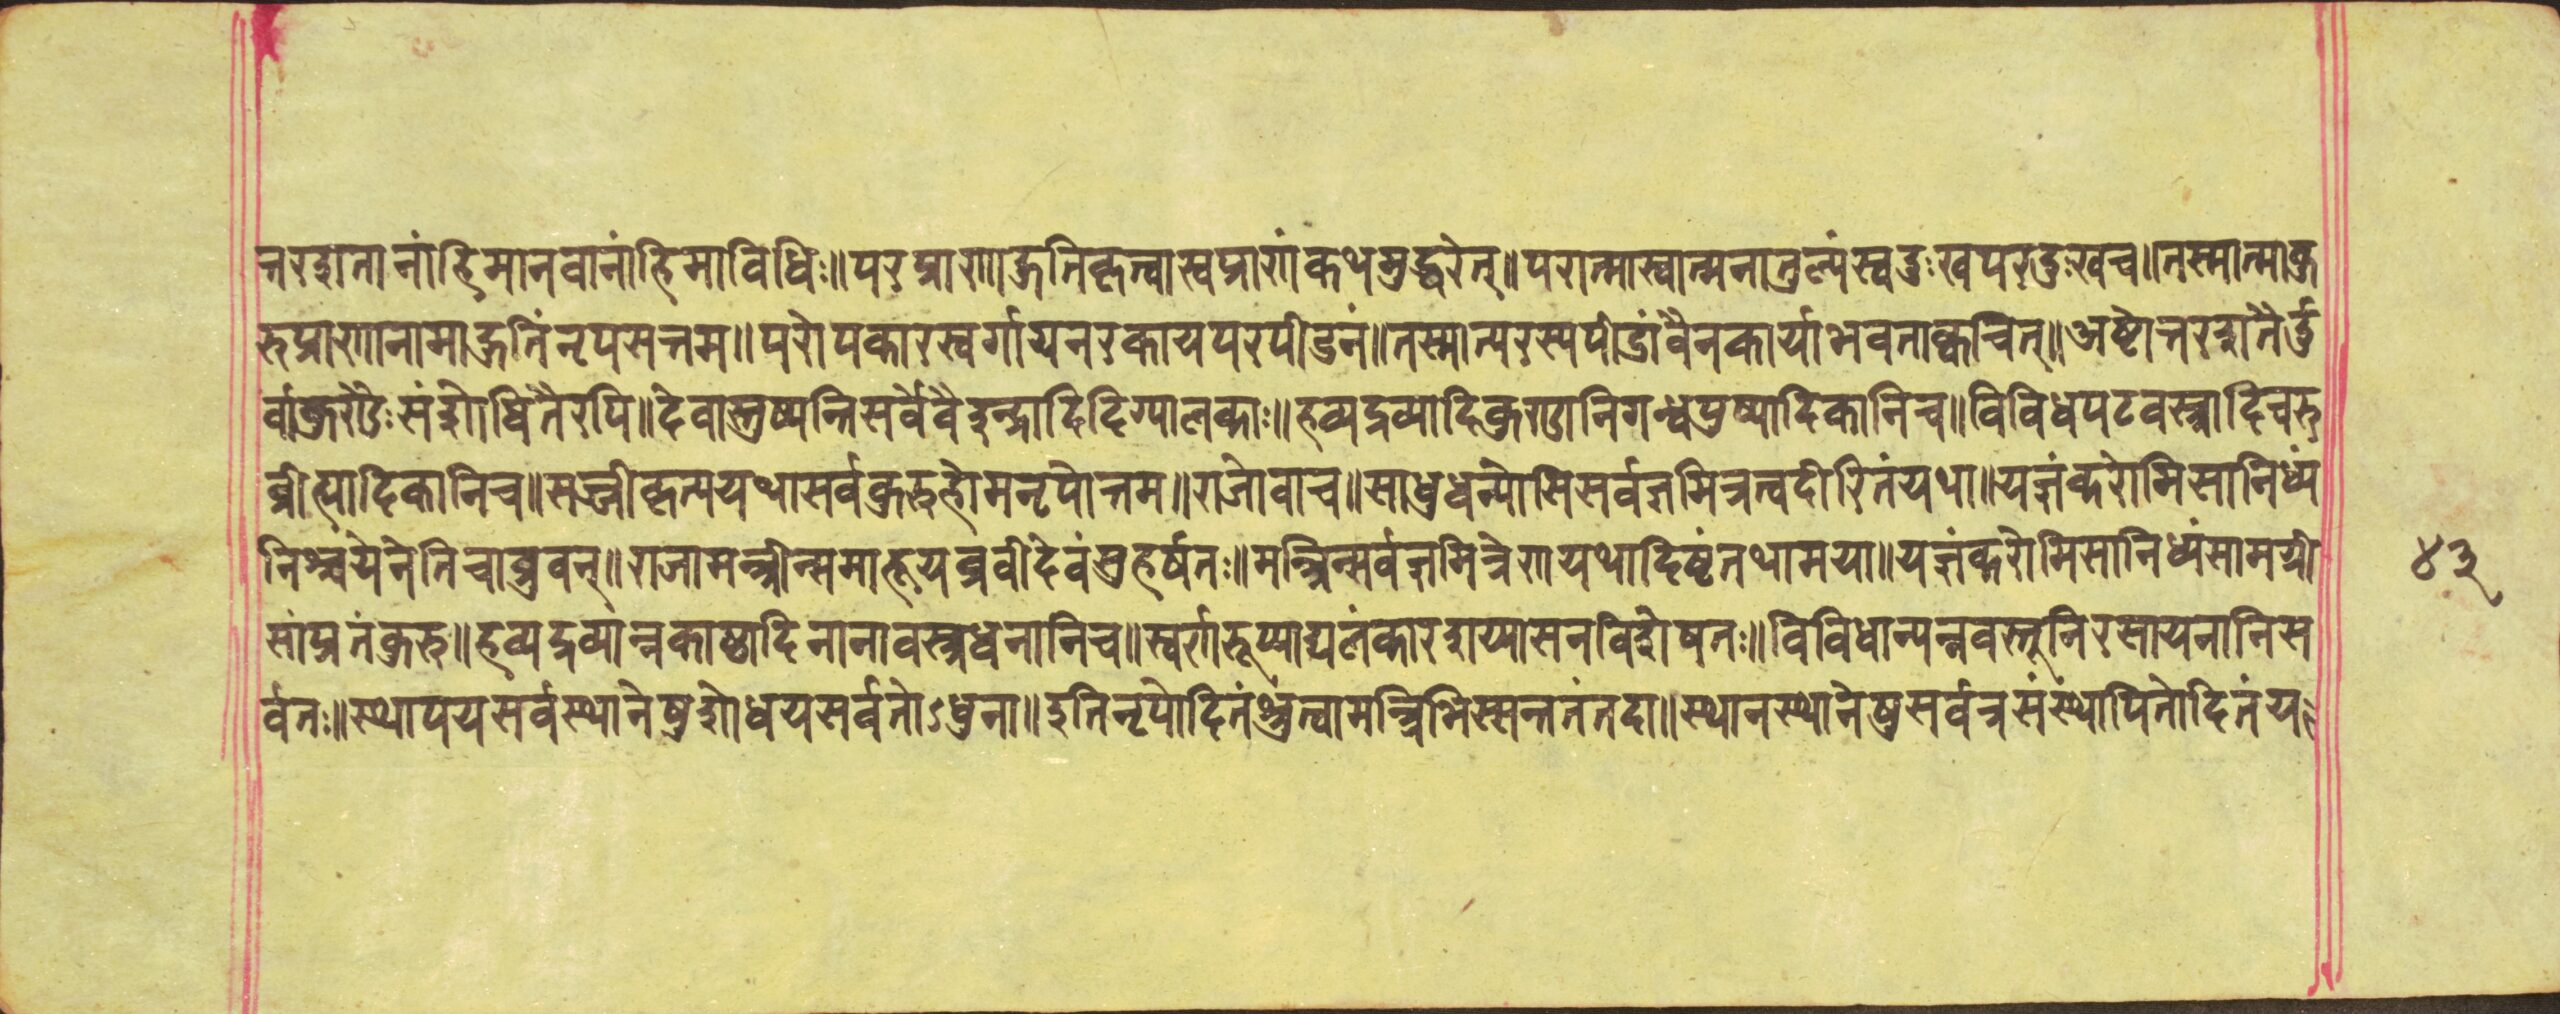 त्तरशतानांहिमानवानांहिमाविधिः॥परप्राणाहुतिकृत्वास्वप्राणंकथमुद्धरेत्॥परात्मास्वात्मनातुल्यंस्वदुःखपरदुःखच॥तस्मान्माकु
रुप्राणानामाहुतिंनृपसत्तम॥परोपकारस्वर्गायनरकायपरपीडनं॥तस्मात्परस्यपीडांवैनकार्याभवताक्वचित्॥अष्टोत्तरशतैर्दु
र्वाकुण्डैःसंशोधितैरपि॥देवास्तुष्यन्तिसर्वेवैइन्द्रादिदिग्पालकाः॥हव्यद्रव्यादिकुण्डानिगन्धपुष्पादिकानिच॥विविधपटवस्त्रादिचरु
व्रीह्यादिकानिच॥सज्जीकृत्मयथासर्वकुरुहोमनृपोत्तम॥राजोवाच॥साधुधन्योसिसर्वज्ञमित्रत्वदीरितंयथा॥यज्ञंकरोमिसानिध्यं
निश्चयेनेतिचाब्रुवन्॥राजामन्त्रीन्समाहूयब्रवीदेवंप्रहर्षतः॥मन्त्रिन्सर्वज्ञमित्रेणयथादिष्टंतथामया॥यज्ञंकरोमिसानिध्यंसामग्री
सांप्रतंकुरु॥हव्यद्रव्यान्नकाष्ठादिनानावस्त्रधनानिच॥स्वर्णरूप्याद्यलंकारशय्यासनविशेषतः॥विविधान्यन्नवस्तूनिरसायनानिस
र्वतः॥स्थापयसर्वस्थानेषुशोधयसर्वतोऽधुना॥इतिनृपोदितंश्रुत्वामन्त्रिभिस्सन्ततंतदा॥स्थानस्थानेषुसर्वत्रसंस्थापितोदितंय
४३